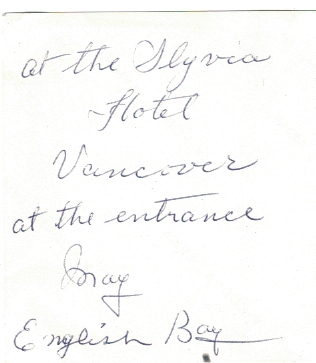 at the Slyvia
Hotel
Vancover
at the entrance
English Bay